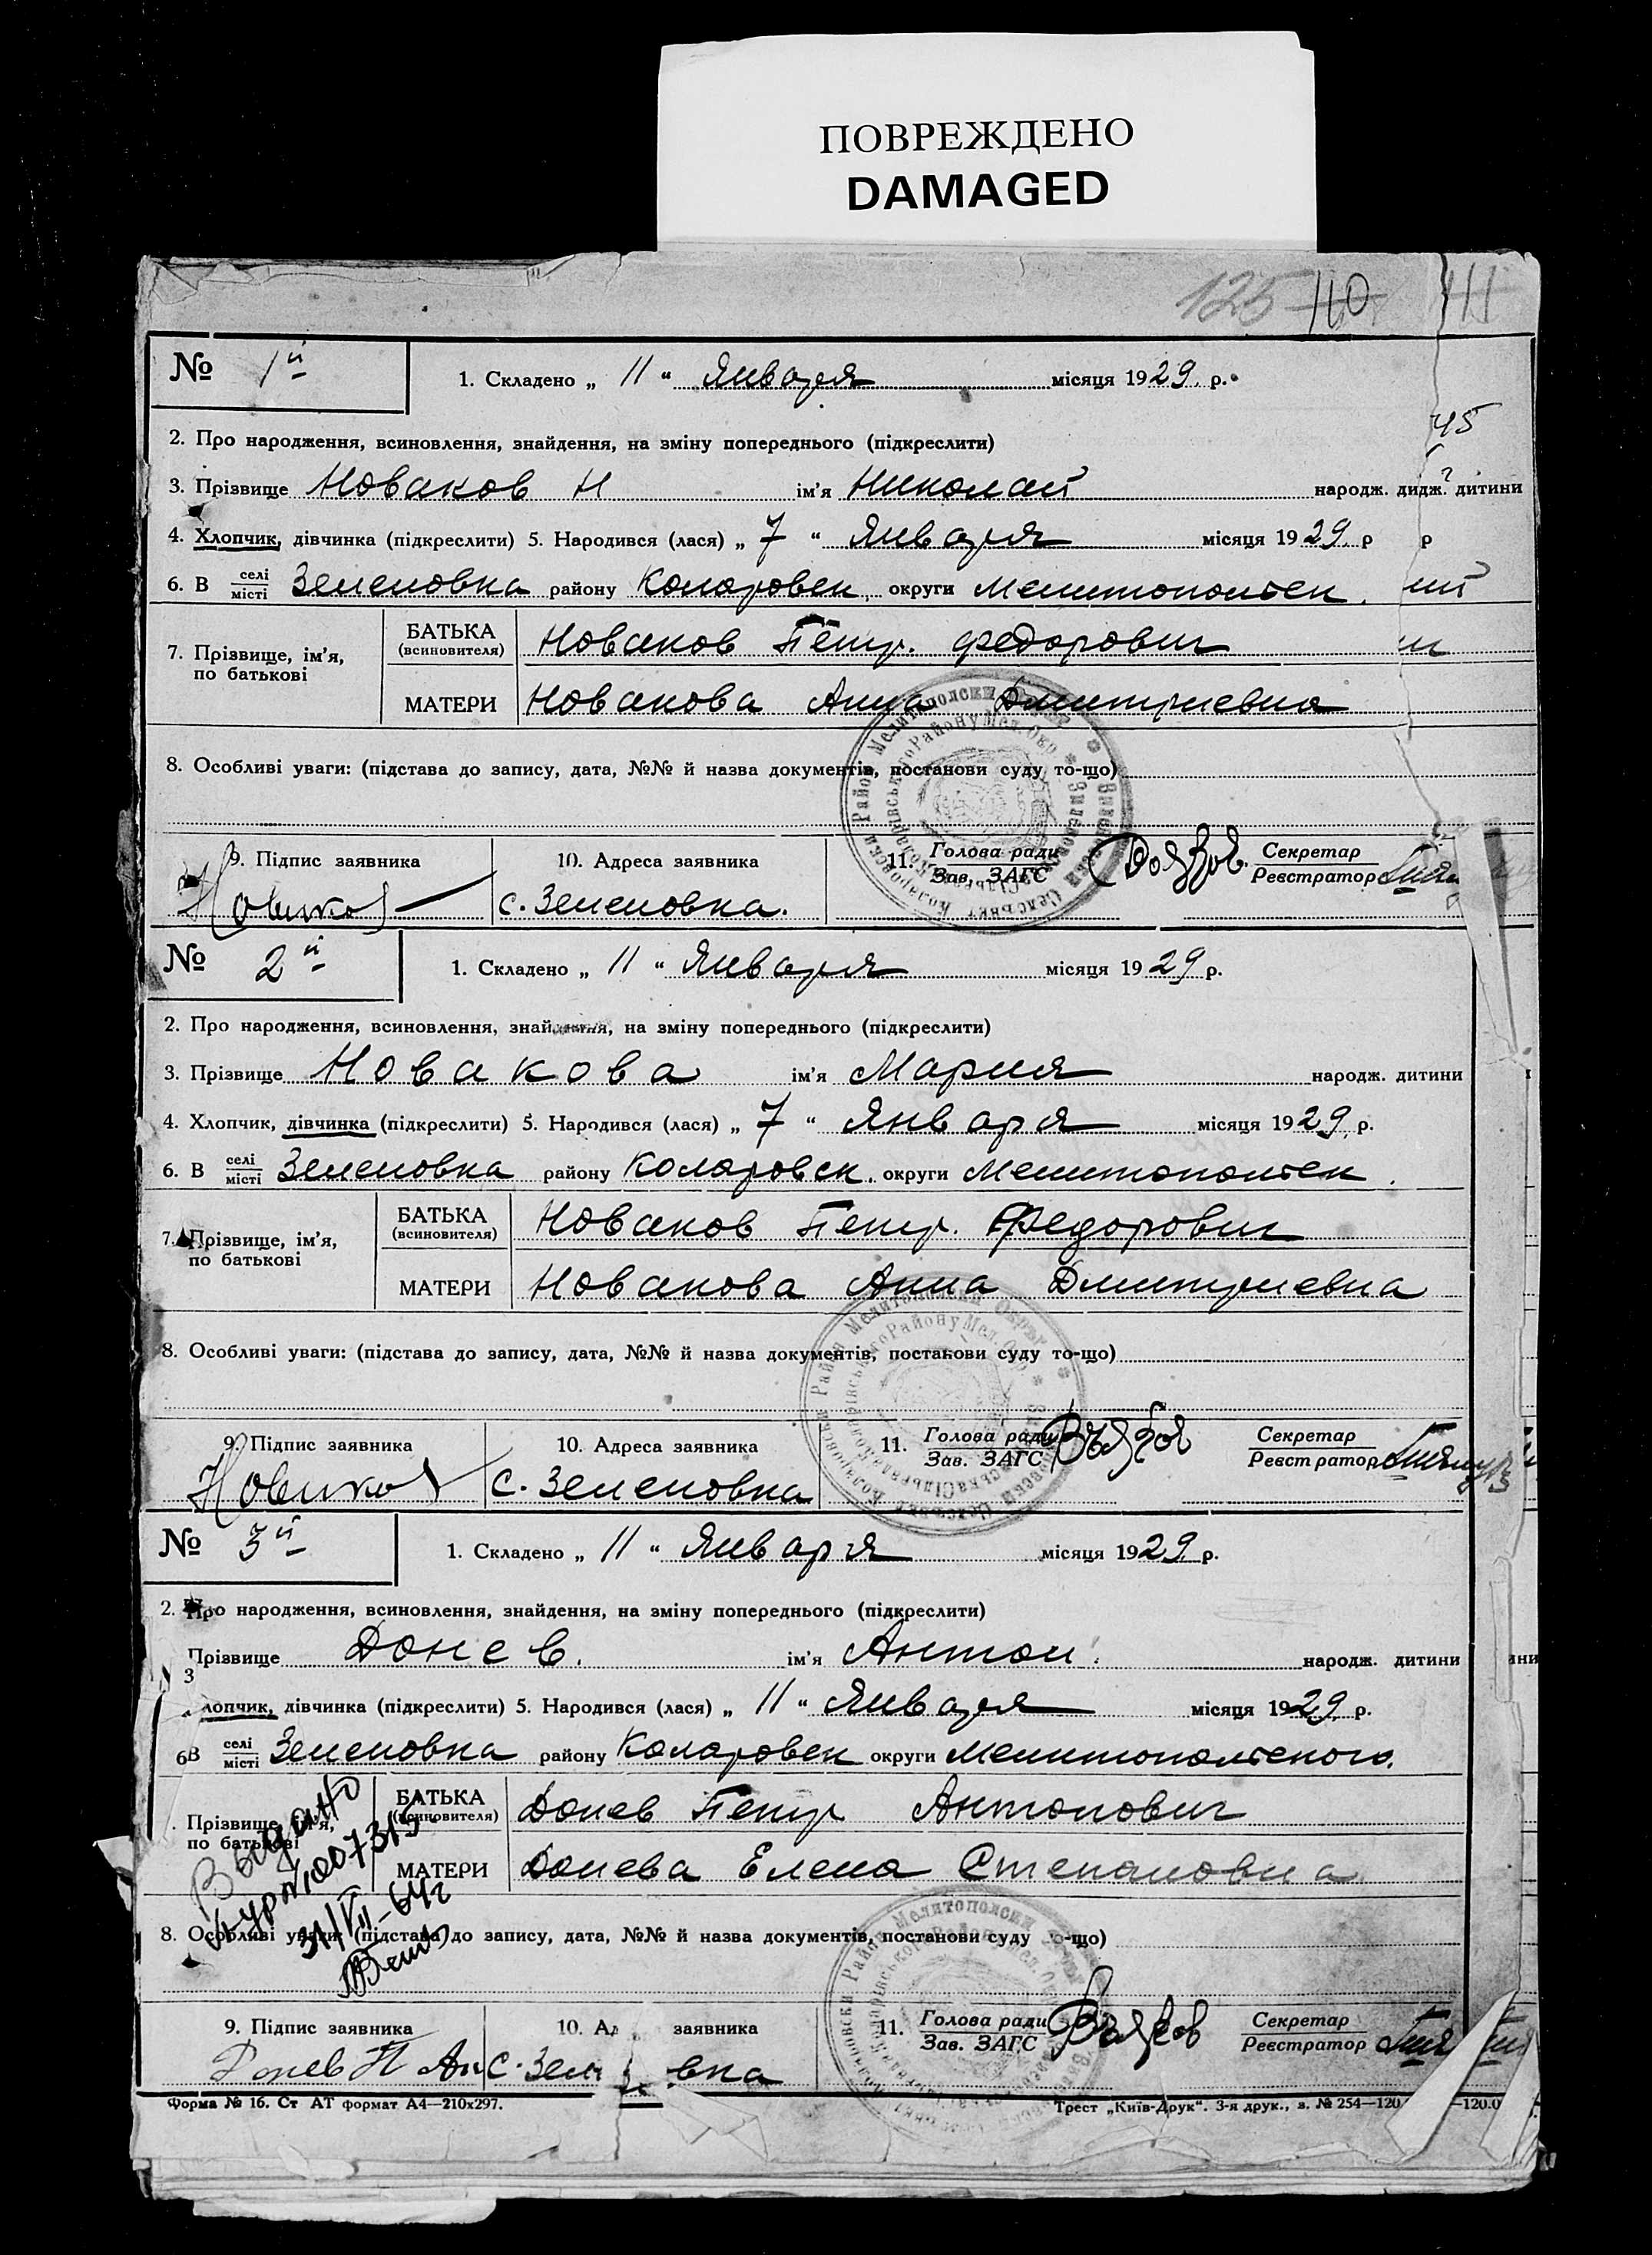 ПОВРЕЖДЕНО
DAMAGED
125 110 111
№ 1й
1. Складено „ 11 “ Января місяця 1929 р.
45
2. Про народження, всиновлення, знайдення, на зміну попереднього (підкреслити)
3. Прізвище Новаков Н ім'я Николай народж. дидж. дитини
4. Хлопчик, дівчинка (підкреслити) 5. Народився (лася) „ 7 “ Января місяця 1929 р р
6. В селі Зеленовка району Коларовск. округи Мелитопольск.
місті
7. Прізвище, ім'я, по батькові
БАТЬКА (всиновителя) Новаков Петр. Федорович
МАТЕРИ Новакова Анна Дмитриевна
8. Особливі уваги: (підстава до запису, дата, №№ й назва документів, постанови суду то-що)
9. Підпис заявника 10. Адреса заявника 11. Голова ради Секретар
Зав. ЗАГС Реєстратор
с. Зеленовка.
№ 2й
1. Складено „ 11 “ Января місяця 1929 р.
2. Про народження, всиновлення, знайдення, на зміну попереднього (підкреслити)
3. Прізвище Новакова ім'я Мария народж. дитини
4. Хлопчик, дівчинка (підкреслити) 5. Народився (лася) „ 7 “ Января місяця 1929 р.
6. В селі Зеленовка району Коларовск. округи Мелитопольск.
місті
7. Прізвище, ім'я, по батькові
БАТЬКА (всиновителя) Новаков Петр. Федорович
МАТЕРИ Новакова Анна Дмитриевна
8. Особливі уваги: (підстава до запису, дата, №№ й назва документів, постанови суду то-що)
9. Підпис заявника 10. Адреса заявника 11. Голова ради Секретар
Зав. ЗАГС Реєст ратор
с. Зеленовка
№ 3й
1. Складено „ 11 “ Января місяця 1929 р.
2. Про народження, всиновлення, знайдення, на зміну попереднього (підкреслити)
3 Прізвище Донев. ім'я Антон. народж. дитини
лопчик, дівчинка (підкреслити) 5. Народився (лася) „ 11 “ Января місяця 1929 р.
6В селі Зеленовка району Коларовск округи Мелитопольского.
місті
Прізвище, ім'я, по батькові
БАТЬКА (всиновителя) Донев Петр Антонович
МАТЕРИ Донева Елена Степановна
Выдано
31/VII-64г
8. Особливі уваги: (підстава до запису, дата, №№ й назва документів, постанови суду то-що)
9. Підпис заявника 10. Ад заявника 11. Голова ради Секретар
Зав. ЗАГС Реєстратор
Донев П Ан с. Зел вка
Форма № 16. Ст АТ формат А4—210х297. Трест „Київ-Друк“. 3-я друк., з. № 254—120 —120.0